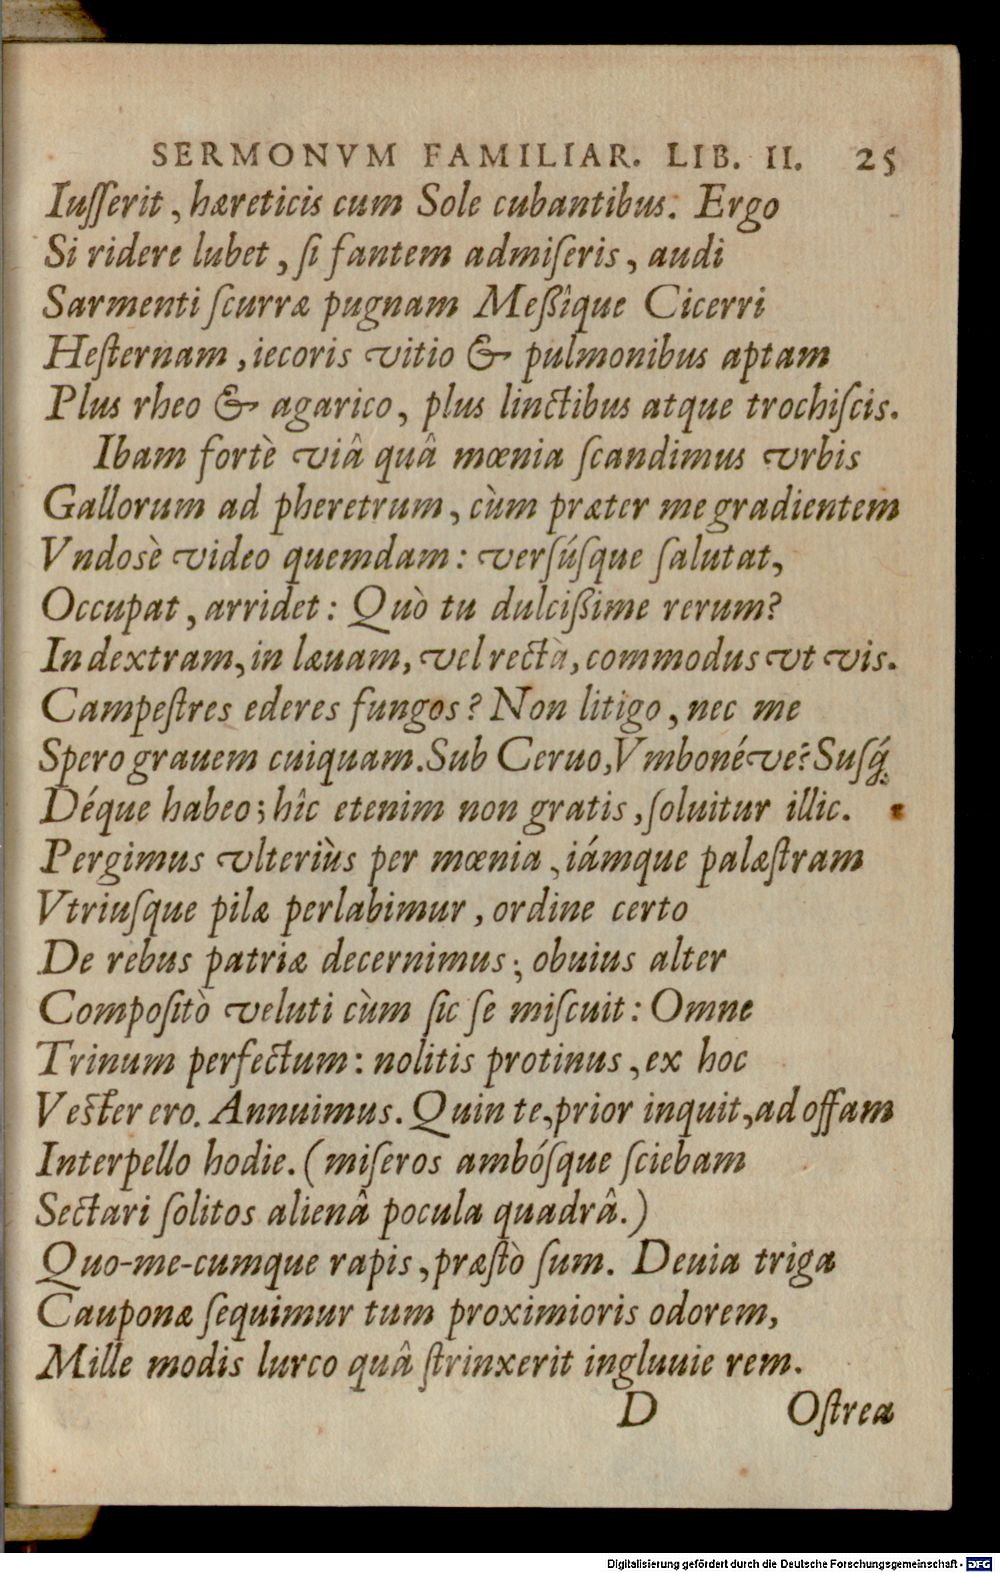 SERMONVM FAMILIAR. LIB. II. 25
Iuſſerit, hæreticis cum Sole cubantibus. Ergo
Si ridere lubet, ſi fantem admiſeris, audi
Sarmenti ſcurræ pugnam Meßîque Cicerri
Heſternam, iecoris vitio & pulmonibus aptam
Plus rheo & agarico, plus linctibus atque trochiſcis.
Ibam fortè viâ quâ mœnia ſcandimus vrbis
Gallorum ad pheretrum, cùm præter me gradientem
Vndosè video quemdam: verſúſque ſalutat,
Occupat, arridet: Quò tu dulcißime rerum?
In dextram, in læuam, vel rectà, commodus vt vis.
Campeſtres ederes fungos? Non litigo, nec me
Spero grauem cuiquam. Sub Ceruo, Vmbonéve? Suſq́;
Déque habeo; hîc etenim non gratis, ſoluitur illic.
Pergimus vlteriùs per mœnia, iámque palæſtram
Vtriuſque pilæ perlabimur, ordine certo
De rebus patriæ decernimus; obuius alter
Compoſitò veluti cùm ſic ſe miſcuit: Omne
Trinum perfectum: nolitis protinus, ex hoc
Veſter ero. Annuimus. Quin te, prior inquit, ad offam
Interpello hodie. (miſeros ambóſque ſciebam
Sectari ſolitos alienâ pocula quadrâ.)
Quo-me-cumque rapis, præſtò ſum. Deuia triga
Cauponæ ſequimur tum proximioris odorem,
Mille modis lurco quâ ſtrinxerit ingluuie rem.
D Oſtrea
Digitalisierung gefördert durch die Deutsche Forschungsgemeinschaft - DFG